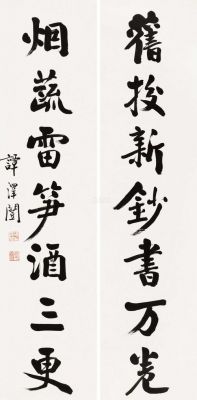 舊投新鈔書万卷
烟蔬雷笋酒三更
譚澤闓